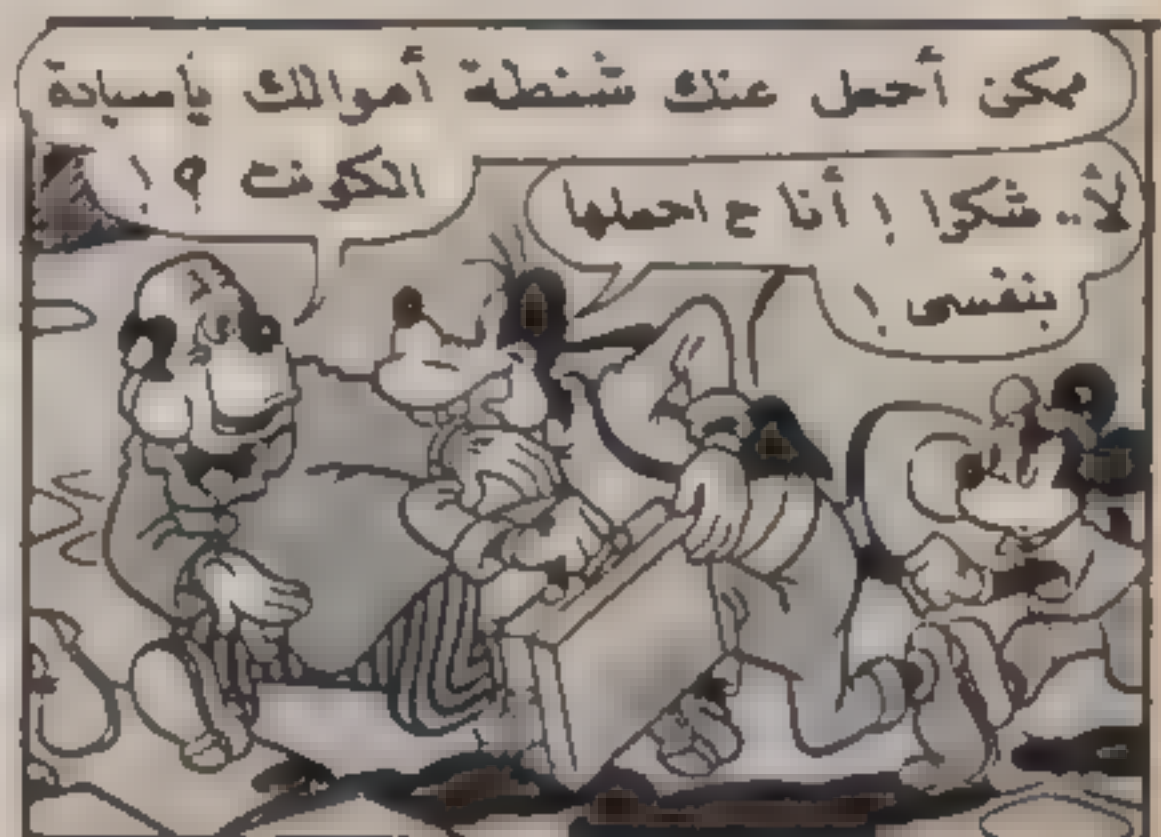 ممكن أحمل عنك شنطة أموالك ياسيادة
الكونت ؟!
لأ.. شكرا ! أنا ح احملها
بنفسى !